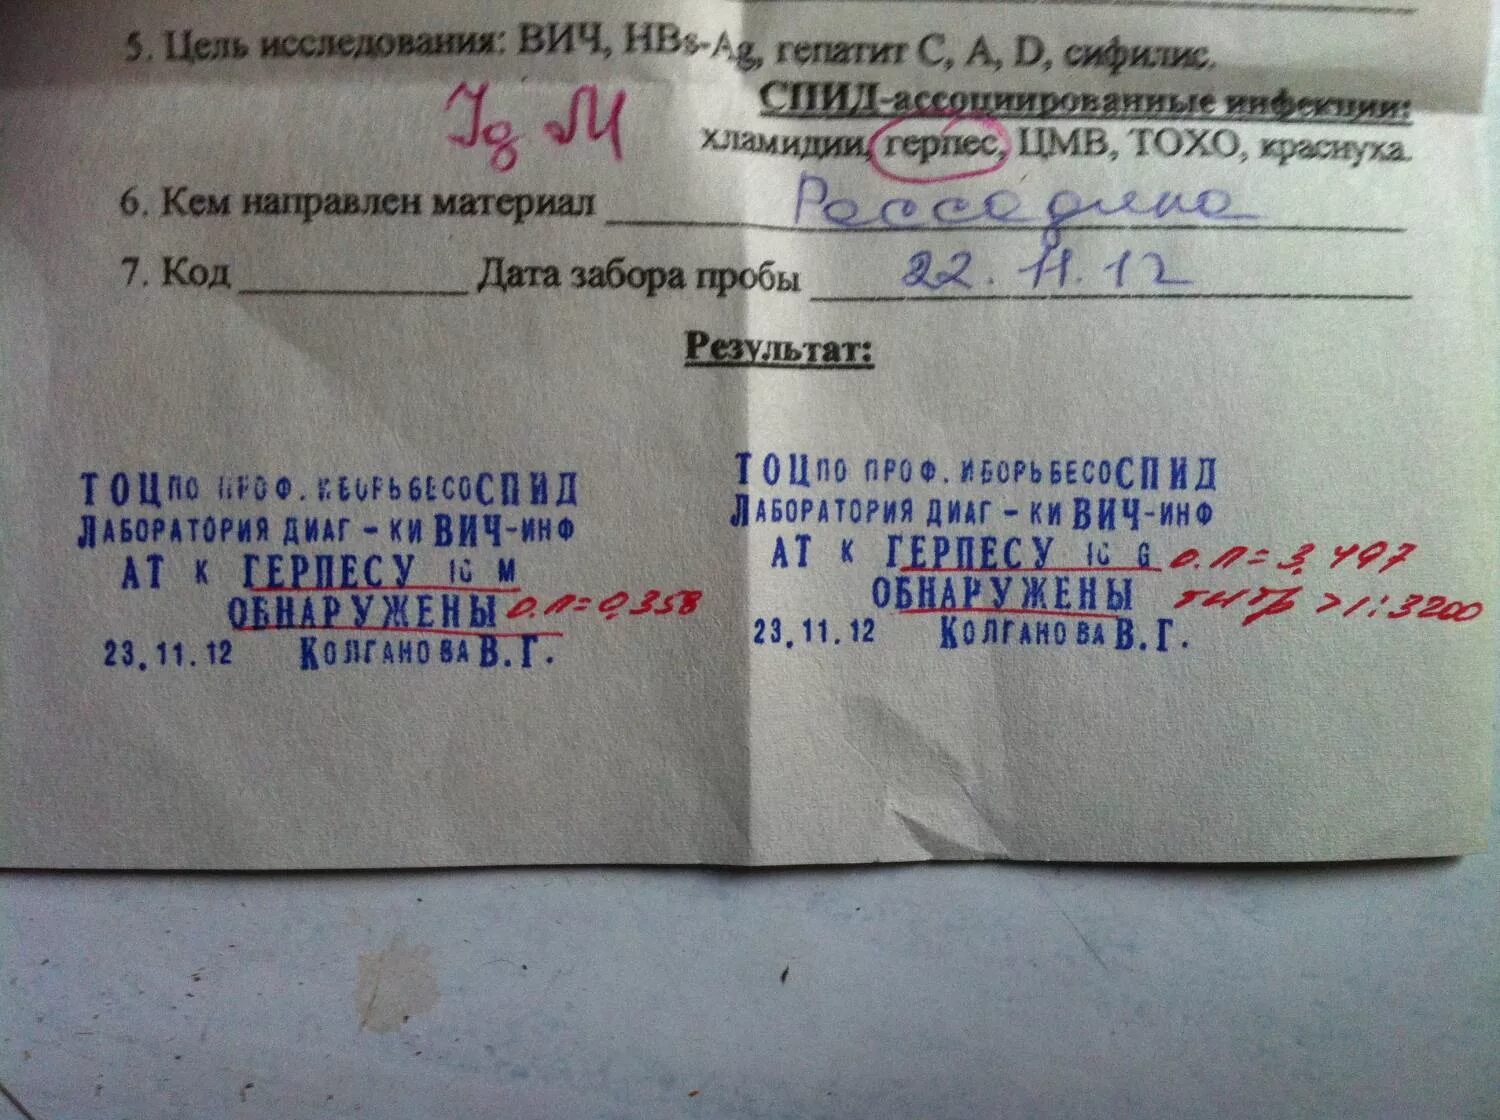 5. Цель исследования: ВИЧ, HBs-Ag, гепатит С, А, D, сифилис.
СПИД-ассоциированные инфекции:
Ig M
хламидии, герпес, ЦМВ, ТОХО, краснуха.
6. Кем направлен материал Рассадина
7. Код Дата забора пробы 22.11.12
Результат:
ТОЦ ПО ПРОФ. И БОРЬБЕ СО СПИД
ЛАБОРАТОРИЯ ДИАГ-КИ ВИЧ-ИНФ
АТ К ГЕРПЕСУ IG M
ОБНАРУЖЕНЫ о.п=0,358
23.11.12 КОЛГАНОВА В.Г.
ТОЦ ПО ПРОФ. И БОРЬБЕ СО СПИД
ЛАБОРАТОРИЯ ДИАГ-КИ ВИЧ-ИНФ
АТ К ГЕРПЕСУ IG G о.п=3,497
ОБНАРУЖЕНЫ титр >1:3200
23.11.12 КОЛГАНОВА В.Г.